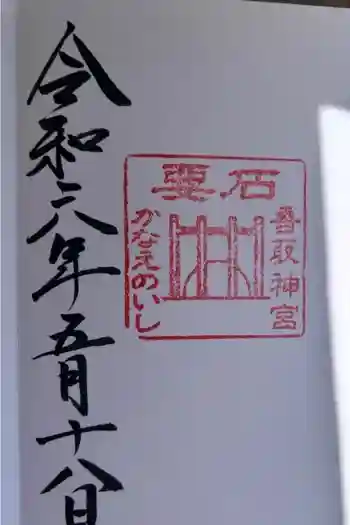 石要
香取神宮
かなめのいし
令和六年五月十八日